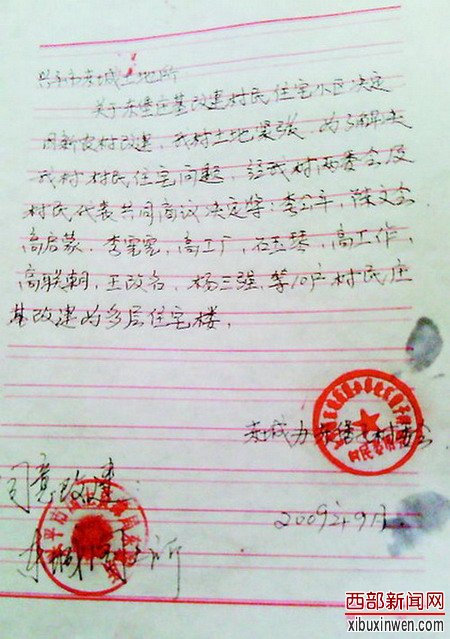 兴平市东城土地所
关于东堡庄基改建村民住宅小区决定
因新农村改建,我村土地紧张,为了解决
我村村民住宅问题,经我村两委会及
村民代表共同商议决定
高启蒙,李宽宽,高工厂,石玉琴,高工作,
高联朝,王改名,杨三强,等10户村民庄
基改建为多层住宅楼,
东城办东堡村委会
同意改建
东城
2009年9月
西部新闻网
xibuxinwen.com